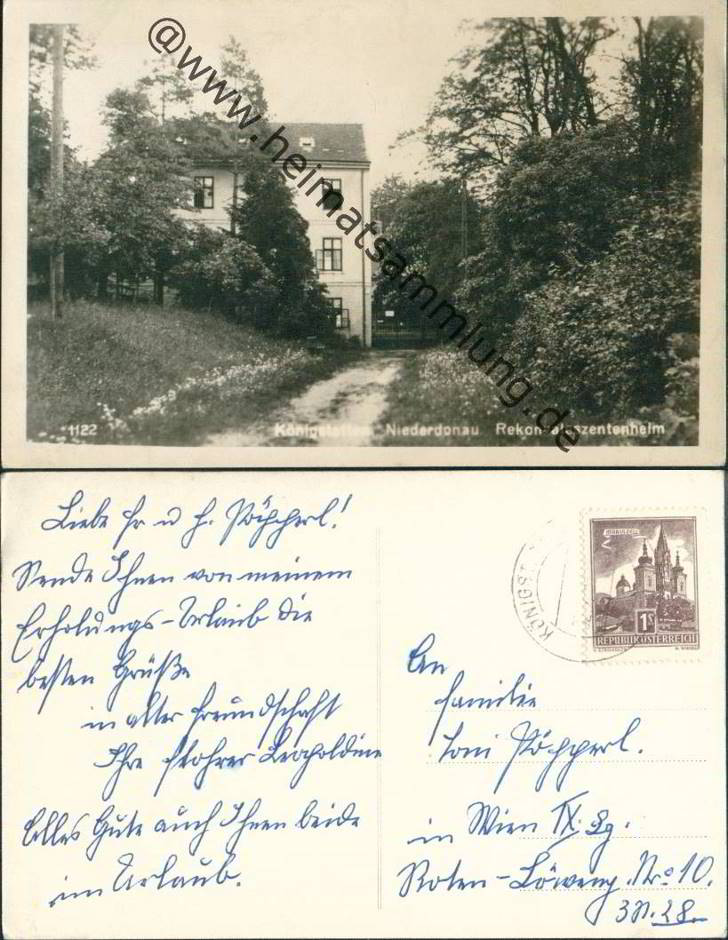 @www.heimatsammlung.de
1122 Königstetten Niederdonau Rekonvaleszentenheim
Liebe Fr u H. Pöchperl!
Sende Ihnen von meinem
Erholungs-Urlaub die
besten Grüße
in alter Freundschaft
Ihre Leopoldine
Alles Gute auch Ihnen beide
im Urlaub.
MARIAZELL
1S
REPUBLIK ÖSTERREICH
KÖNIGST
An
Familie
Toni Pöchperl.
in Wien IX. Bg.
Roten-Löweng. Nr. 10.
28.